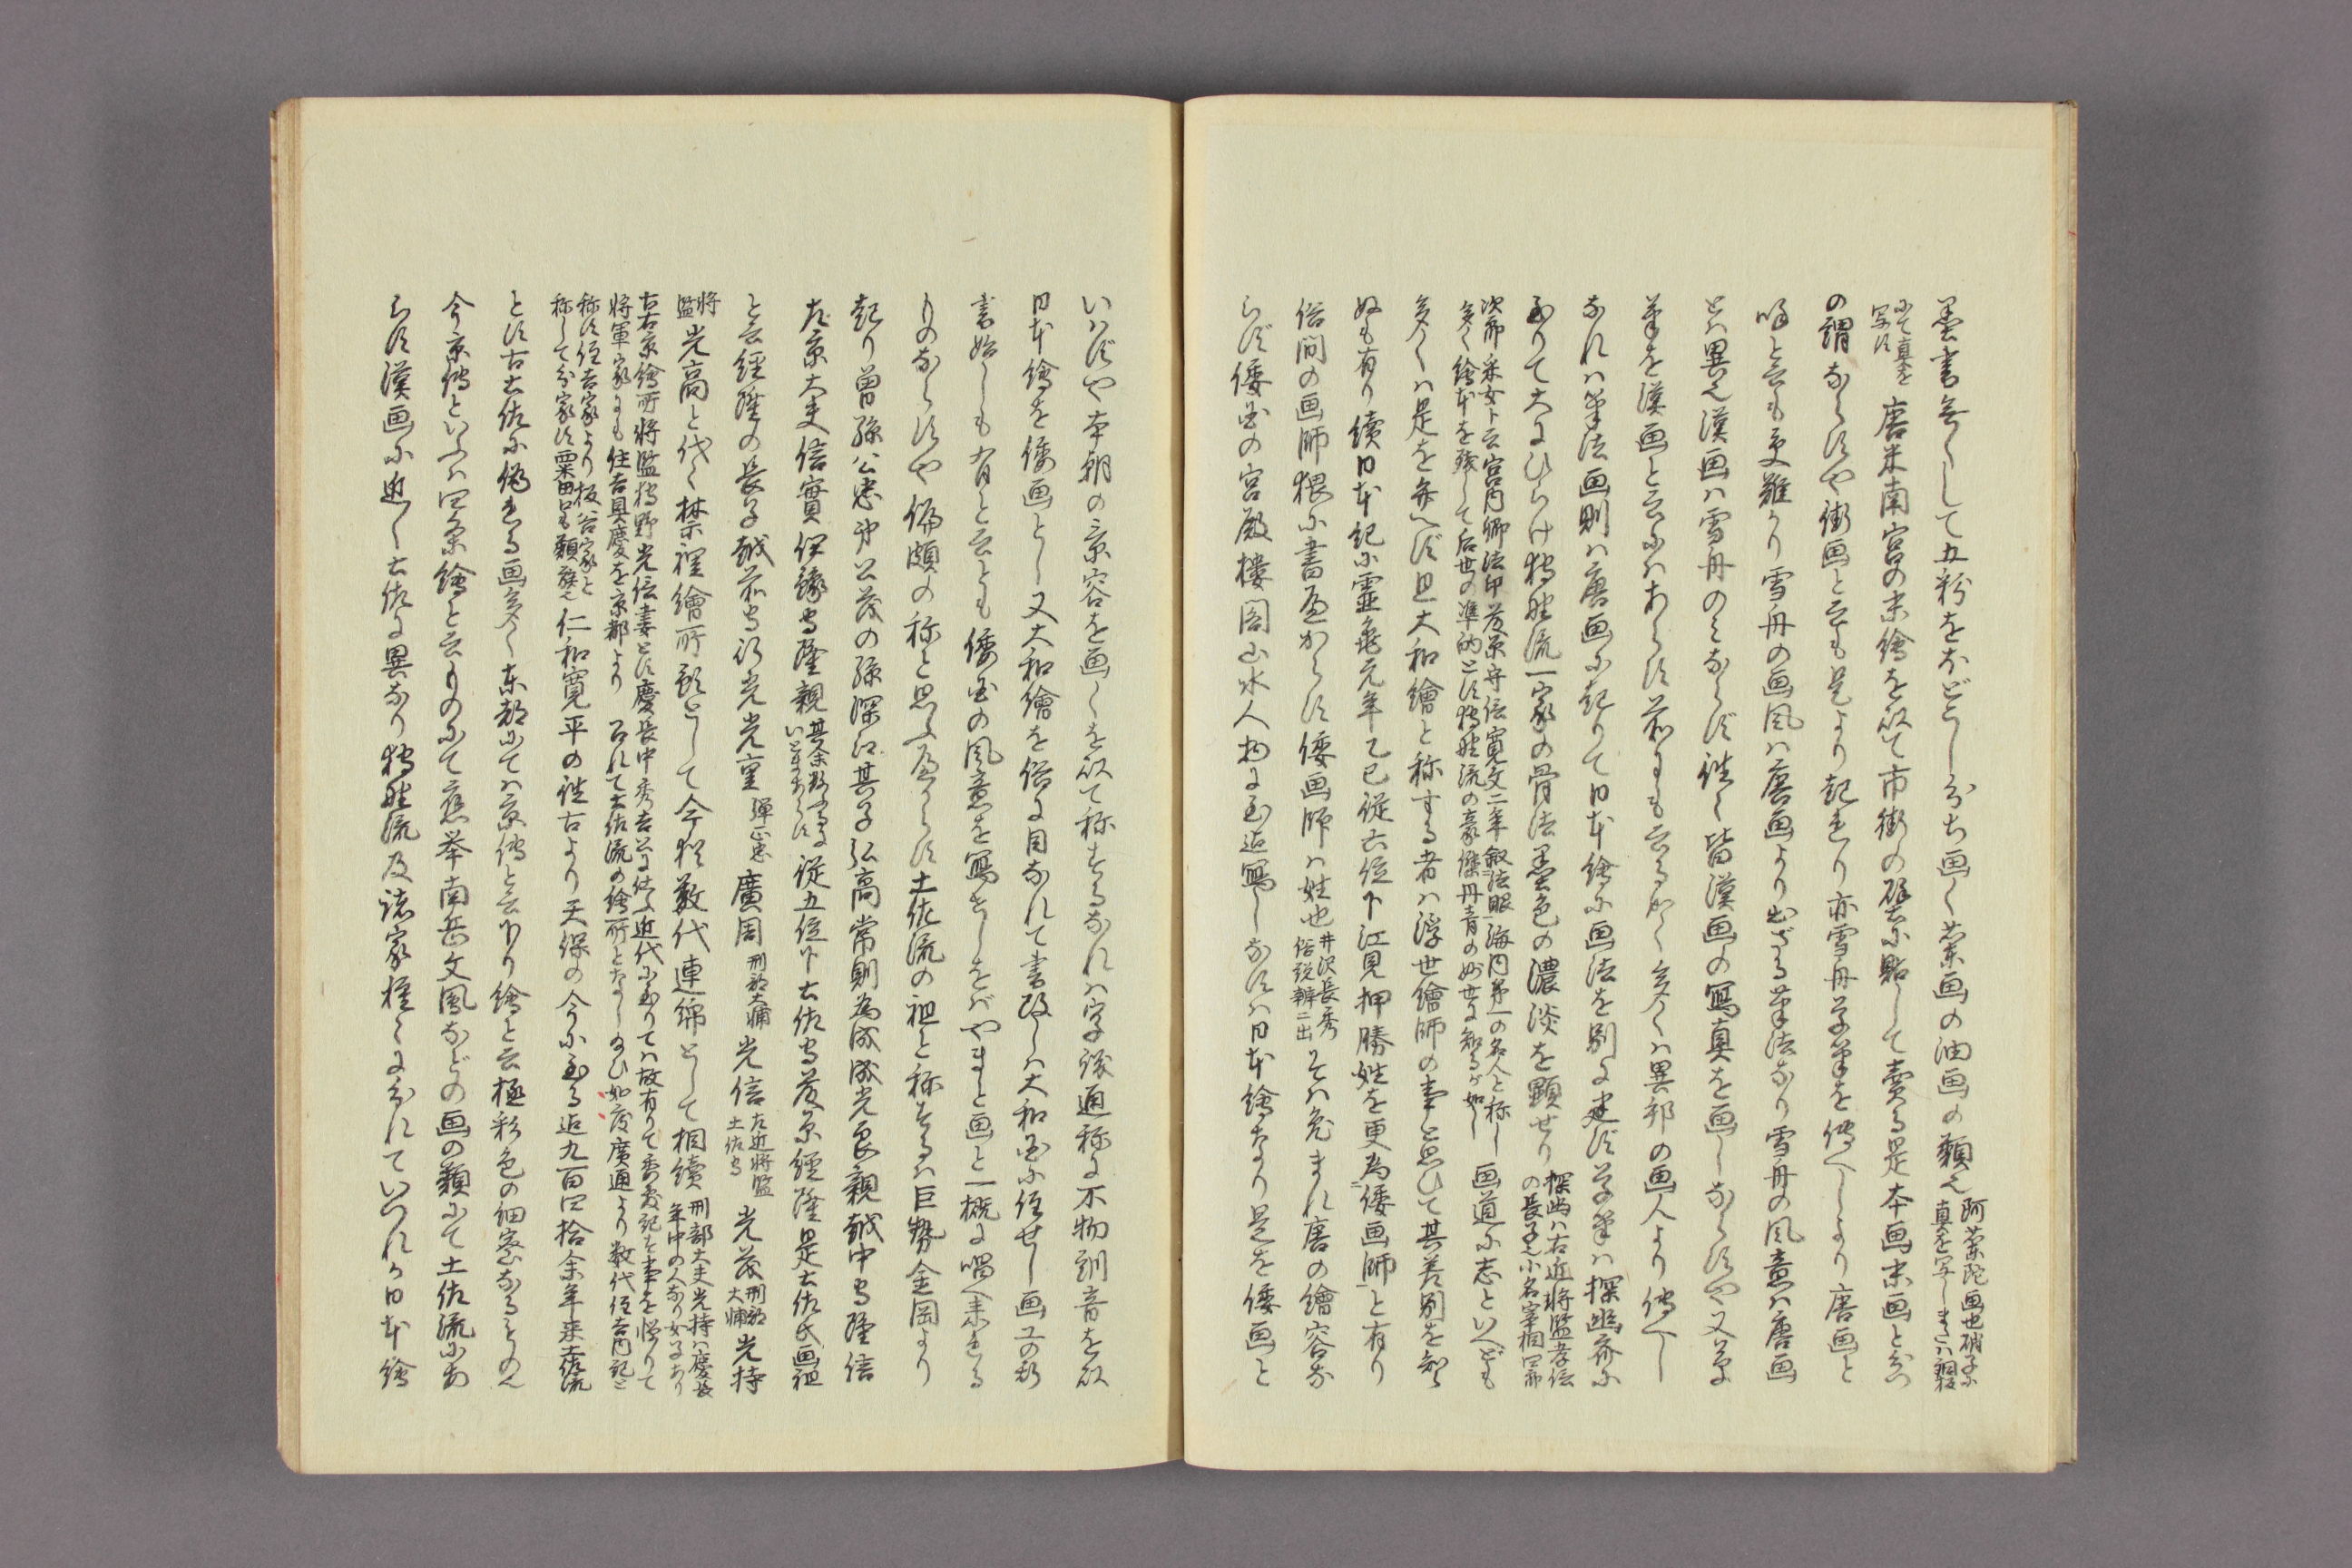 墨書無くして五粉をほどこし分ち画く蘭画の油画の類也阿蘭陀画也硝子に真を写しまたハ銅板
にて真を写す唐米南宮の末絵を以て市街の壁に貼して売る是本画末画と分つ
の謂ならずや街画と云も是より起れり亦雪舟草筆を伝へしより唐画と
唱と云も更難かり雪舟の画風ハ唐画より出ざる筆法なり雪舟の風意ハ唐画
とハ異也漢画ハ雪舟のミならず往々皆漢画の写真を画しならずや又草
筆を漢画と云にハあらず前にも云る如く多くハ異邦の画人より伝へし
なれハ筆法画則ハ唐画に起りて日本絵に画法を別に建ず草筆ハ探幽斎に
至りて大にひらけ狩野流一家の骨法墨色の濃淡を顕せり探幽ハ右近将監孝信の長子也小名宰相四郎
次郎采女ト云宮内卿法印藤原守信寛文二年叙法眼海内第一の名人と称し多く絵本を残して后世の準的とす狩野流の豪傑丹青の妙世に知るが如し画道に志といへども
多くハ是を弁へず且大和絵と称する者ハ浮世絵師の事と思ひて其差別を知
ぬも有り続日本紀に霊亀元年乙巳従六位下江見押勝姓を更為倭画師と有り
俗間の画師猥に書べからず倭画師ハ姓也井沢長秀俗説弁ニ出そハ兎まれ唐の絵容な
らず倭国の宮殿楼閣山水人物に至迄写しなすハ日本絵なり是を倭画と
いハずや本朝の景容を画くを以て称するなれハ字該通称に不物訓音を以
日本絵を倭画とし又大和絵を俗に目なれて書改しハ大和国に住せし画工の新
書始しも有と云とも倭国の風意を写せしをばやまと画と一概に唱へ来れる
ものならずや偏頗の称と思ふべからず土佐流の祖と称するハ巨勢金岡より
起り曽孫公忠弟公茂の孫深江其子弘高常則為成成光良親越中守隆信
左京大夫信実伊豫守隆親其余数ふるにいとまあらず従五位下土佐守藤原経隆是土佐氏画祖
と云経隆の長子越前守行光光重弾正忠廣周刑部大輔光信左近将監土佐守光茂刑部大輔光持
将監光高と代々禁裡絵所預として今猶数代連綿として相続刑部大夫光持ハ慶長年中の人なり女子あり
右京絵所将監狩野光信妻とす慶長中秀吉公に仕ふ近代に至りてハ故有りて画家記を事を惜りて将軍家にも住吉具慶を京都より召れて土佐流の絵所となし給ひ如慶廣通より数代住吉内記と
称す住吉家より板谷家と称して分家す粟田口も類族也仁和寛平の往古より天保の今に至る迄九百四拾余年来土佐流
とす古土佐に倣る画多く東都にてハ京伝と云下り絵と云極彩色の細密なるもの也
今京伝といふハ四条絵と云ものにて應挙南岳文鳳などの画の類にて土佐流にあ
らず漢画に近く土佐に異なり狩野流及諸家種々に分れていづれか日本絵